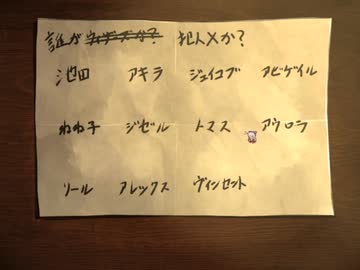 誰が 犯人Xか?
池田 アキラ ジェイコブ アビゲイル
ねね子 ジゼル トマス アウロラ
ソール アレックス ヴィンセント